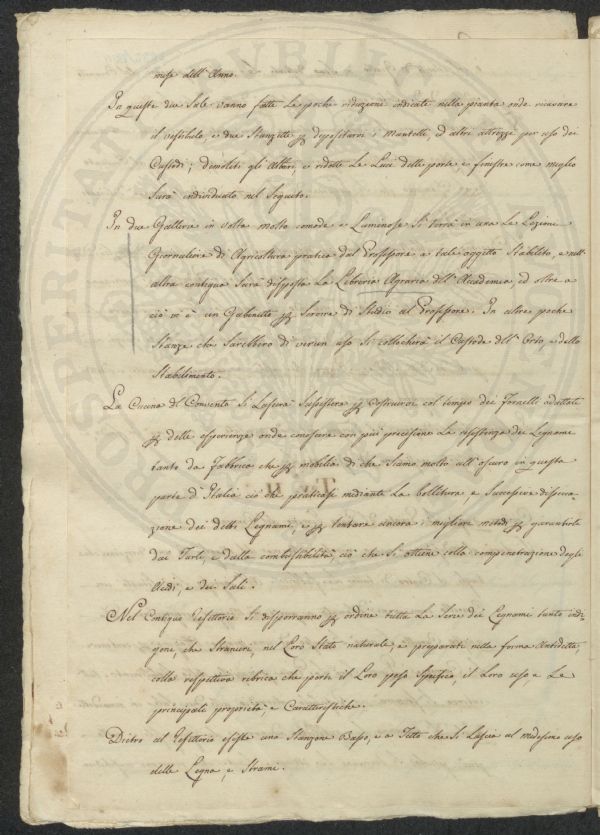 mese dell' Anno.
In queste due Sale vanno fatte Le poche riduzioni indicate nella pianta onde ricavare
il vestibolo, e due Stanzette p depositarvi i Mantelli, ed altri attrezzi per uso dei
Custodi; demoliti gli Altari, e ridotte Le Luci delle porte e finestre come meglio
Sarà individuato nel Seguito.
In due Gallerie in volta molto comode e Luminose Si terrà in una Le Lezioni
Giornaliere di Agricoltura pratica dal Professore a tale oggetto Stabilito, e nell'
altra contigua Sarà disposta La Libreria Agraria dell' Accademia, ed oltre a
ciò vi è un Gabinetto p Servire di Studio al Professore. In altre poche
Stanze che Sarebbero di verun uso Si collocherà il Custode dell' Orto, e dello
Stabilimento.
La Cucina del Convento Si Lascerà Sussistere p costruirvi col tempo dei Fornelli adattati
p delle esperienze onde conoscere con più precisione La resistenza dei Legnami
tanto da Fabbrica che p mobilia di che Siamo molto all' oscuro in questa
parte d' Italia ciò che praticasi mediante La bollitura, e Successiva
zione dei detti Legnami, e p tentare ancora i migliori metodi p garantirli
dai Tarli, e dalla combustibilità, ciò che Si ottiene colla compenetrazione degli
Acidi, e dei Sali.
Nel Contiguo Refettorio Si disporranno p ordine tutta La Serie dei Legnami tanto indi-
gene, che Stranieri, nel Loro Stato naturale, e preparati nella forma Antidetta,
colla respettiva rubrica che porti il Loro peso Specifico, il Loro uso, e Le
principali proprietà, e Caratteristiche.
Dietro al Refettorio esiste uno Stanzone Basso, e a Tetto che Si Lascia al medesimo uso
delle Legna, e Strami.